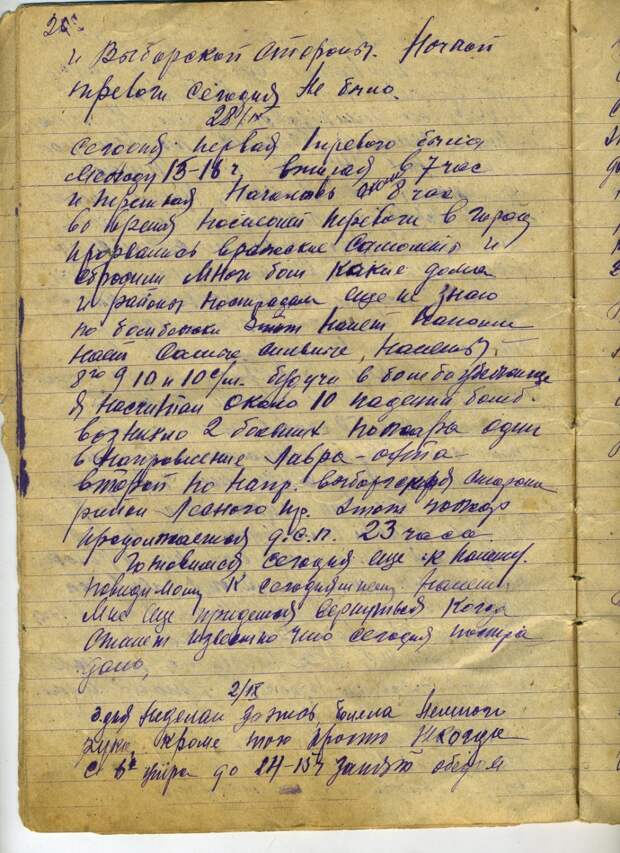 20
и Выборской стороны. Ночной
тревоги сегодня не было.
28/IX
Сегодня первая тревога была
между 15-16 ч. вторая в 7 час
и третья началась 8 час
во время последней тревоги в город
прорвались вражеские самолеты и
сбросили много бомб какие дома
и районы пострадали еще не знаю
по бомбежки этот налет
налет самый сильный, налеты
8го 9 10 и 10 с/м. будучи в бомбоубежище
я насчитал около 10 падений бомб.
возникло 2 больших пожара один
в направление Лавра-охта-
второй по напр. выборгской стороны
район Лесного пр. этот пожар
продолжается д.с.п. 23 часа
Готовимся сегодня еще к налету.
повидимому к сегодняшнему налету
мне еще придется вернуться когда
станет известно что сегодня постра
дало,
2/IX
3 дня не делал запись, болела немного
рука, кроме того просто некогда
с 6 утра до 24-15ч занят обедом